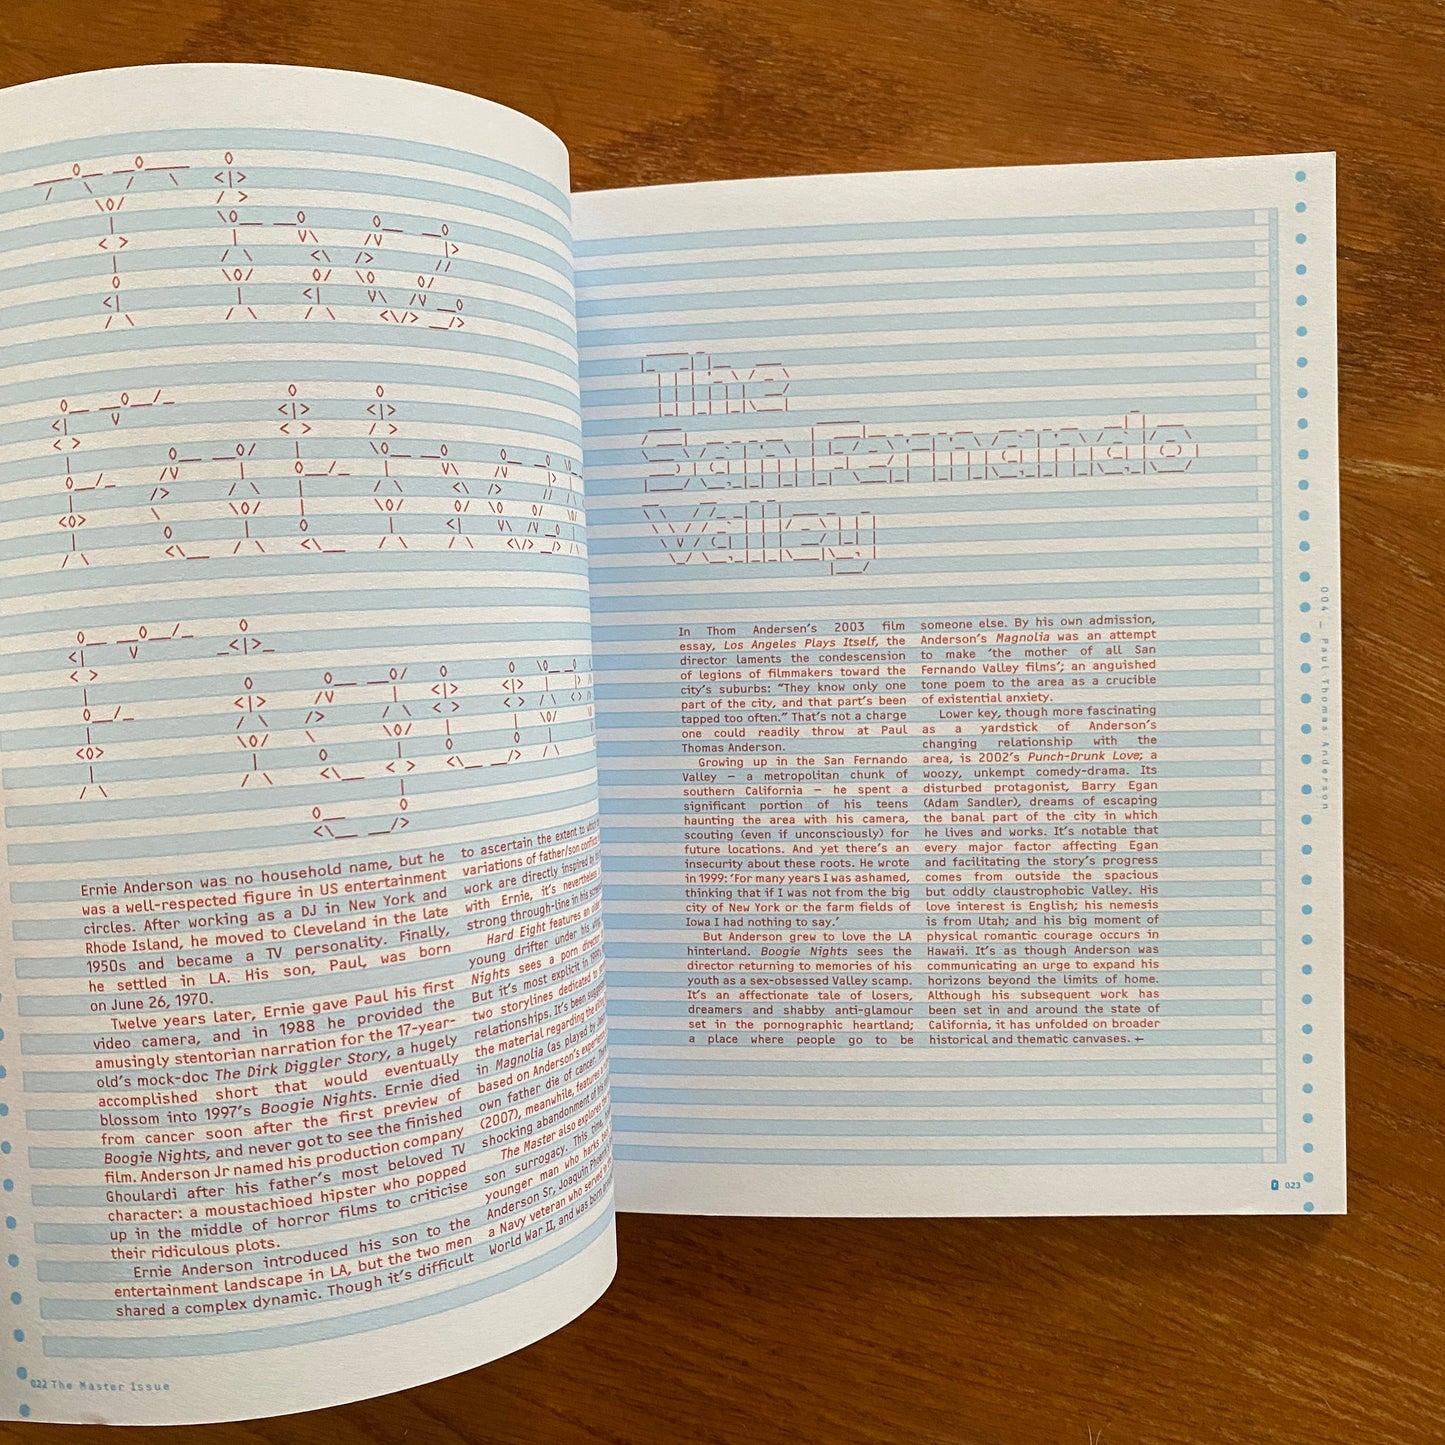 The
Father
Figure
Ernie Anderson was no household name, but he
was a well-respected figure in US entertainment
circles. After working as a DJ in New York and
Rhode Island, he moved to Cleveland in the late
1950s and became a TV personality. Finally,
he settled in LA. His son, Paul, was born
on June 26, 1970.
Twelve years later, Ernie gave Paul his first
video camera, and in 1988 he provided the
amusingly stentorian narration for the 17-year-
old's mock-doc The Dirk Diggler Story, a hugely
accomplished short that would eventually
blossom into 1997's Boogie Nights. Ernie died
from cancer soon after the first preview of
Boogie Nights, and never got to see the finished
film. Anderson Jr named his production company
Ghoulardi after his father's most beloved TV
character: a moustachioed hipster who popped
up in the middle of horror films to criticise
their ridiculous plots.
Ernie Anderson introduced his son to the
entertainment landscape in LA, but the two men
shared a complex dynamic. Though it's difficult
to ascertain the extent to which
variations of father/son conflict
work are directly inspired by
with Ernie, it's nevertheless
strong through-line in his
Hard Eight features an
young drifter under his
Nights sees a porn director
But it's most explicit in
two storylines dedicated to
relationships. It's been
the material regarding the
in Magnolia (as played by
based on Anderson's
own father die of cancer.
(2007), meanwhile, features a
shocking abandonment of his
The Master also explores the
son surrogacy. This time,
younger man who harks
Anderson Sr, Joaquin
a Navy veteran who served in
World War II, and was born
022 The Master Issue
The
San Fernando
Valley
In Thom Andersen's 2003 film
essay, Los Angeles Plays Itself, the
director laments the condescension
of legions of filmmakers toward the
city's suburbs: "They know only one
part of the city, and that part's been
tapped too often." That's not a charge
one could readily throw at Paul
Thomas Anderson.
Growing up in the San Fernando
Valley – a metropolitan chunk of
southern California – he spent a
significant portion of his teens
haunting the area with his camera,
scouting (even if unconsciously) for
future locations. And yet there's an
insecurity about these roots. He wrote
in 1999: 'For many years I was ashamed,
thinking that if I was not from the big
city of New York or the farm fields of
Iowa I had nothing to say.'
But Anderson grew to love the LA
hinterland. Boogie Nights sees the
director returning to memories of his
youth as a sex-obsessed Valley scamp.
It's an affectionate tale of losers,
dreamers and shabby anti-glamour
set in the pornographic heartland;
a place where people go to be
someone else. By his own admission,
Anderson's Magnolia was an attempt
to make 'the mother of all San
Fernando Valley films'; an anguished
tone poem to the area as a crucible
of existential anxiety.
Lower key, though more fascinating
as a yardstick of Anderson's
changing relationship with the
area, is 2002's Punch-Drunk Love; a
woozy, unkempt comedy-drama. Its
disturbed protagonist, Barry Egan
(Adam Sandler), dreams of escaping
the banal part of the city in which
he lives and works. It's notable that
every major factor affecting Egan
and facilitating the story's progress
comes from outside the spacious
but oddly claustrophobic Valley. His
love interest is English; his nemesis
is from Utah; and his big moment of
physical romantic courage occurs in
Hawaii. It's as though Anderson was
communicating an urge to expand his
horizons beyond the limits of home.
Although his subsequent work has
been set in and around the state of
California, it has unfolded on broader
historical and thematic canvases.
004 – Paul Thomas Anderson
023